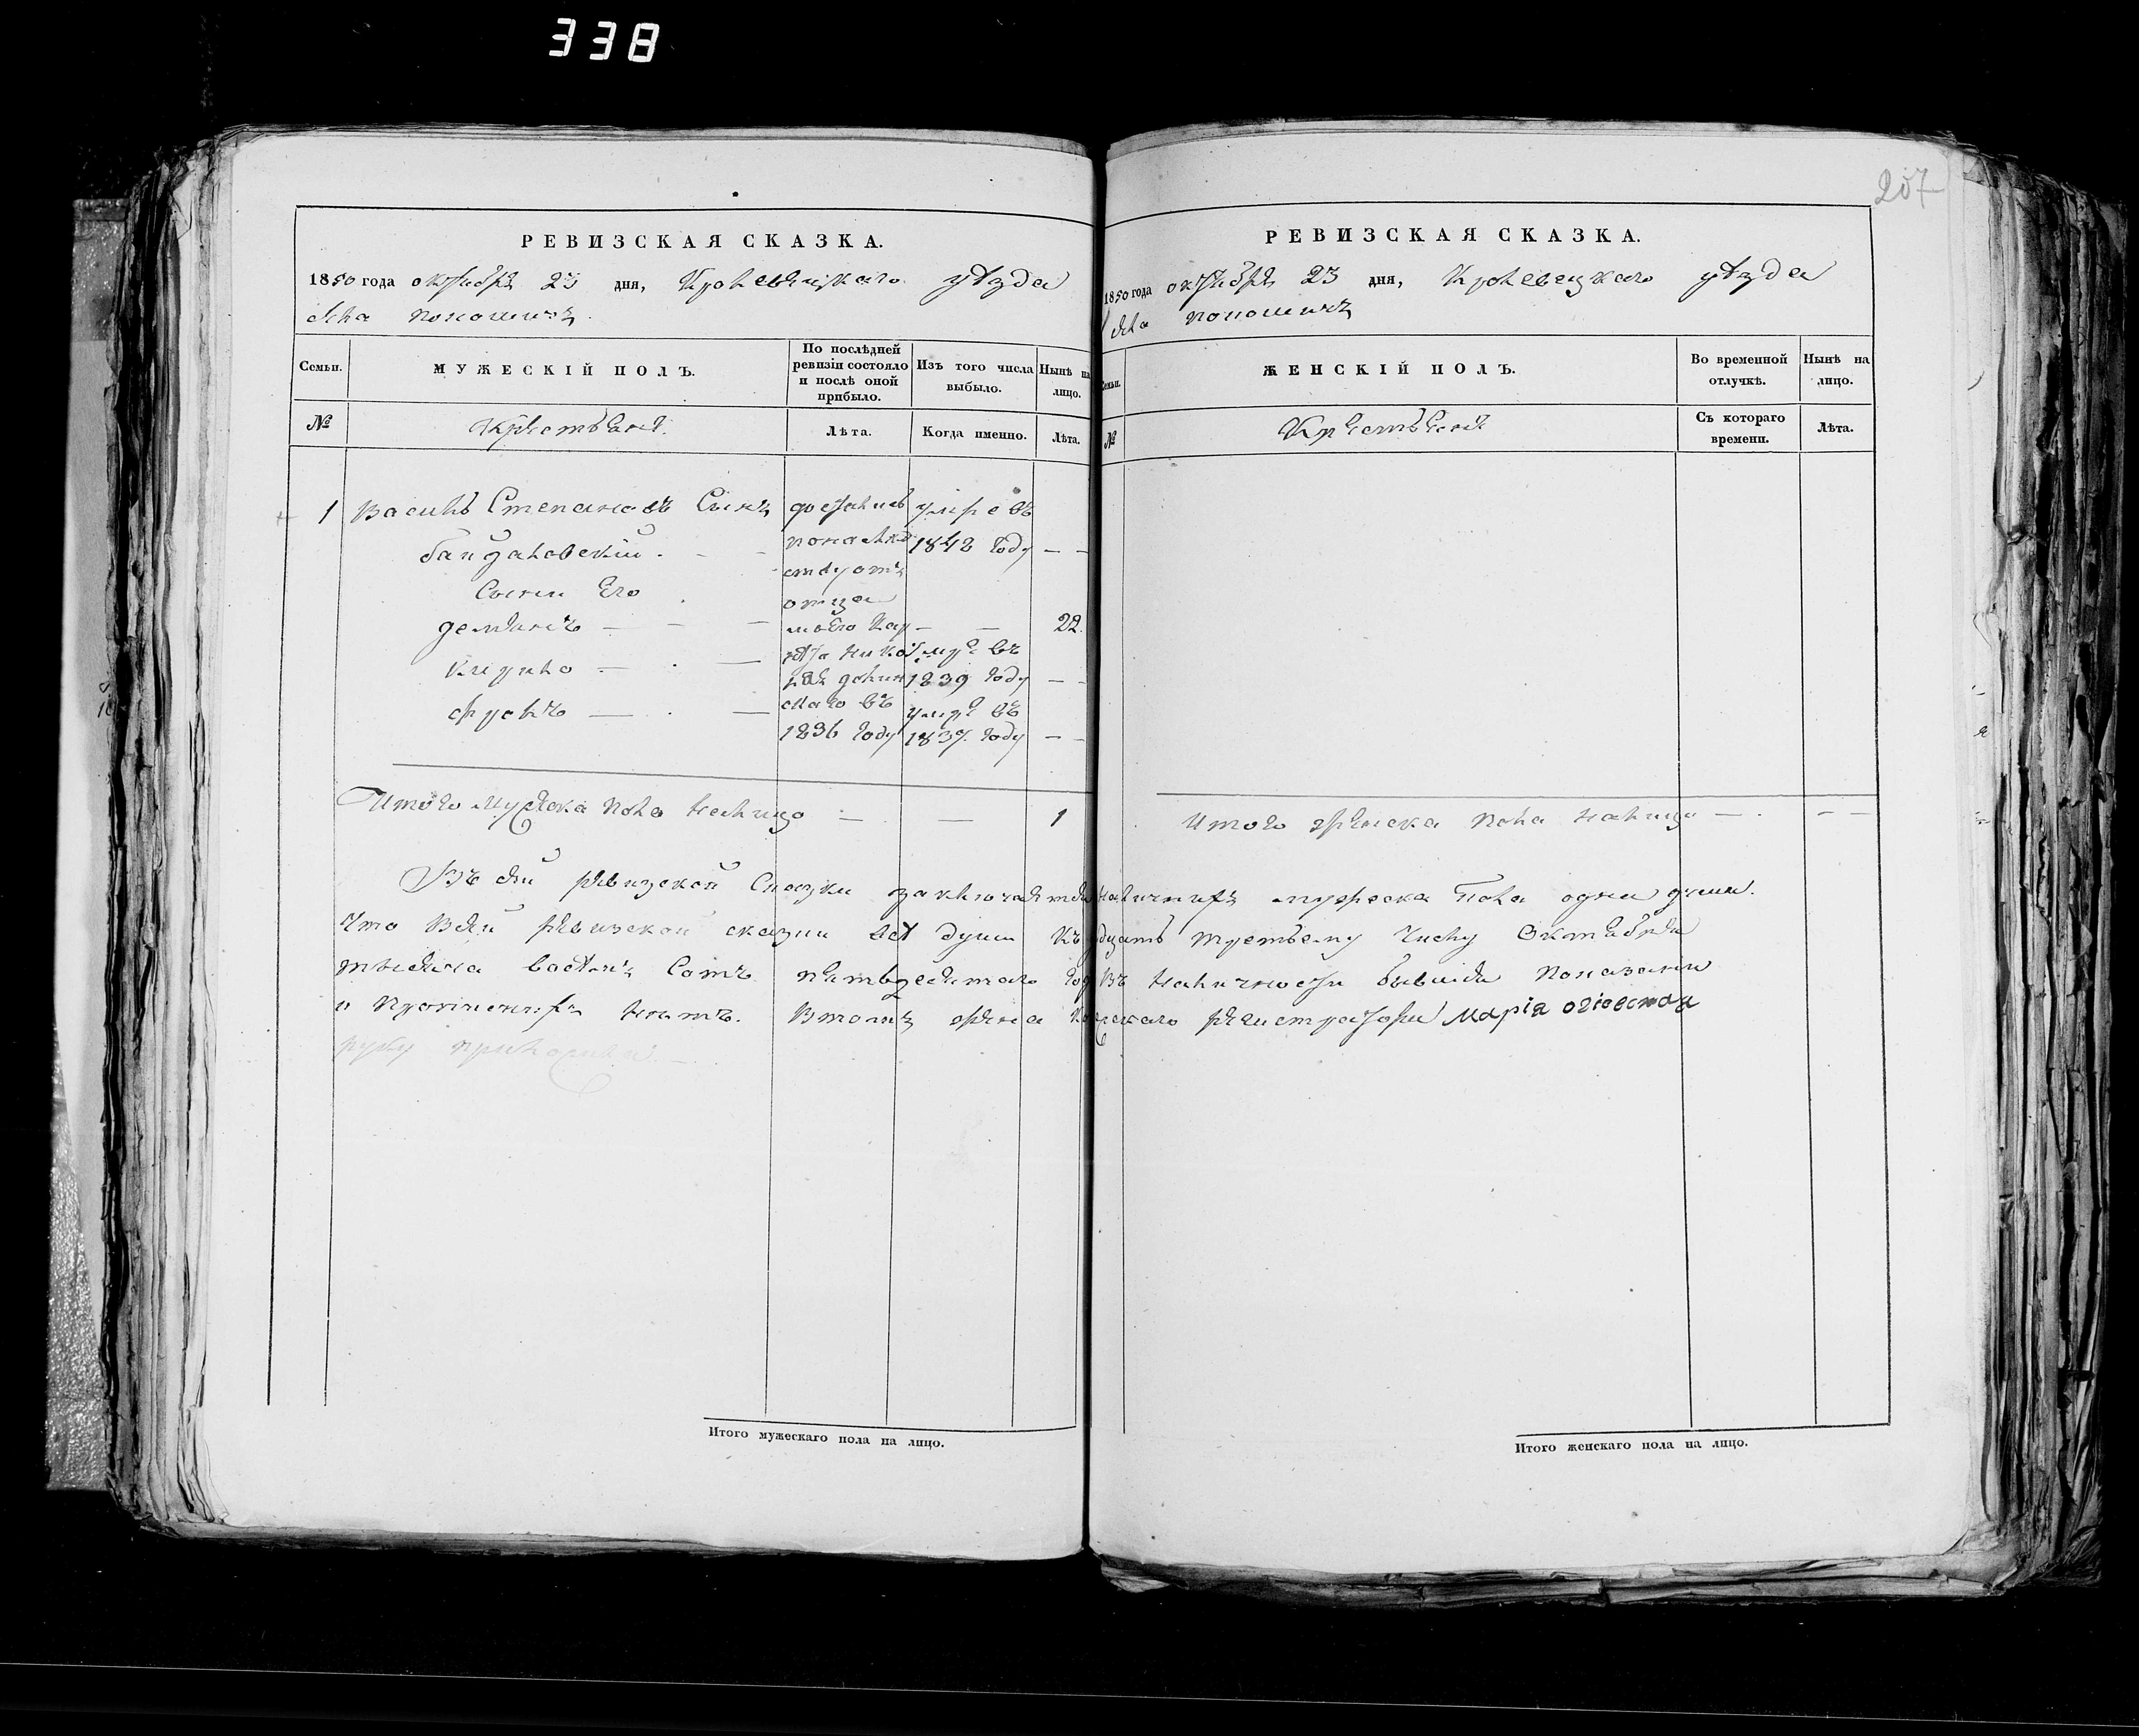 338
207
РЕВИЗСКАЯ СКАЗКА.
1850 года октября 23 дня, Кролевецкаго уѣзда
села
Семьи.
МУЖЕСКІЙ ПОЛЪ.
По послѣдней ревизіи состояло и послѣ оной прибыло.
Изъ того числа выбыло.
Нынѣ на лицо.
№
Крестьяне.
Лѣта.
Когда именно.
Лѣта.
1 Василь Степановъ Сынъ
достались
умре въ
1842 году — —
Сыны Его
отца
Демянъ — — —
22.
умре въ
1839 году — —
умре въ
1836 году
1837 году — —
Итого мужеска пола налицо — — 1
РЕВИЗСКАЯ СКАЗКА.
1850 года октября 23 дня, Кролевецкаго уѣзда
села
Семьи.
ЖЕНСКІЙ ПОЛЪ.
Во временной отлучкѣ.
Нынѣ на лицо.
№
Крестьяне
Съ котораго времени.
Лѣта.
Итого женска пола налицо — — —
Въ сей ревизской Сказки заключается наличнихъ мужеска Пола одна душа.
Что Всей ревизской сказки всѣ души Къ двадцать третьему Числу Октября
тысяча восемъ Сотъ пятьдесятаго году Въ наличности бывшія показаны
и нитъ. Втомъ жена регистратора Марія
руку приложила —
Итого мужескаго пола на лицо.
Итого женскаго пола на лицо.